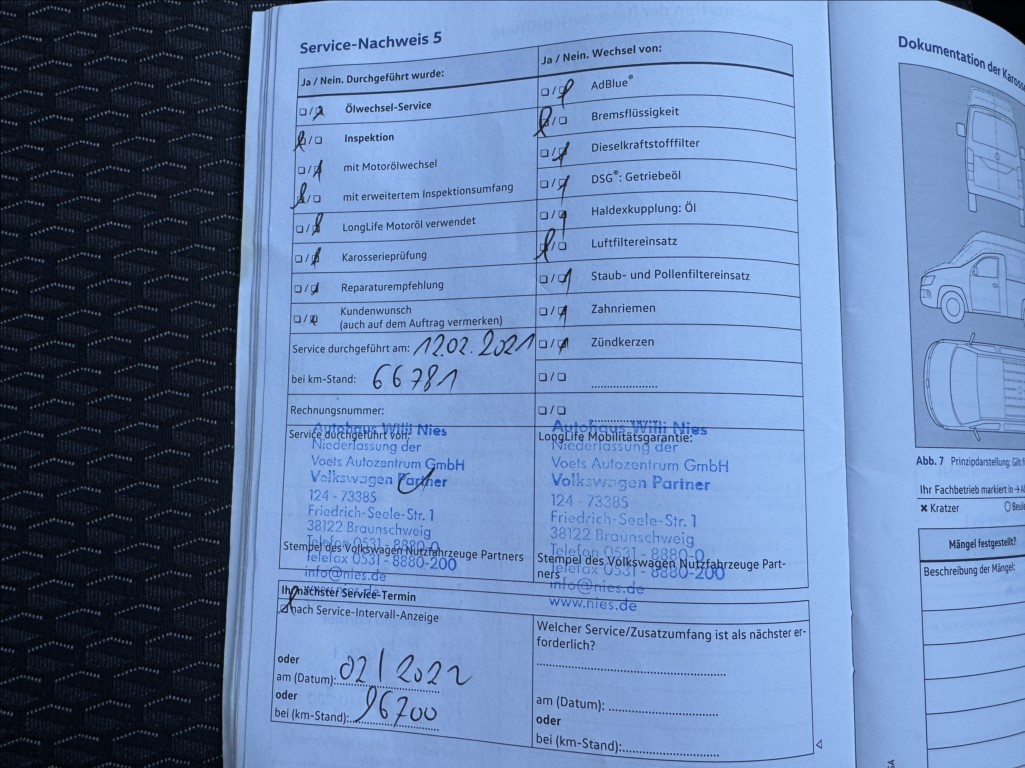 Service-Nachweis 5
Ja / Nein. Durchgeführt wurde:
Ölwechsel-Service
Inspektion
mit Motorölwechsel
mit erweitertem Inspektionsumfang
LongLife Motoröl verwendet
Karosserieprüfung
Reparaturempfehlung
Kundenwunsch
(auch auf dem Auftrag vermerken)
Service durchgeführt am: 12.02.2021
bei km-Stand: 66781
Rechnungsnummer:
Service durchgeführt von:
Autohaus Willi Nies
Niederlassung der
Voets Autozentrum GmbH
Volkswagen Partner
124 - 73385
Friedrich-Seele-Str. 1
38122 Braunschweig
Telefon 0531 - 8880-0
Telefax 0531 - 8880-200
info@nies.de
www.nies.de
Stempel des Volkswagen Nutzfahrzeuge Partners
Ja / Nein. Wechsel von:
AdBlue®
Bremsflüssigkeit
Dieselkraftstofffilter
DSG®: Getriebeöl
Haldexkupplung: Öl
Luftfiltereinsatz
Staub- und Pollenfiltereinsatz
Zahnriemen
Zündkerzen
LongLife Mobilitätsgarantie:
Autohaus Willi Nies
Niederlassung der
Voets Autozentrum GmbH
Volkswagen Partner
124 - 73385
Friedrich-Seele-Str. 1
38122 Braunschweig
Telefon 0531 - 8880-0
Telefax 0531 - 8880-200
info@nies.de
www.nies.de
Stempel des Volkswagen Nutzfahrzeuge Part-
ners
Ihr nächster Service-Termin
nach Service-Intervall-Anzeige
oder
am (Datum): 02/2022
oder
bei (km-Stand): 96700
Welcher Service/Zusatzumfang ist als nächster er-
forderlich?
am (Datum):
oder
bei (km-Stand):
Dokumentation der
Abb. 7 Prinzipdarstellung: Gilt
Ihr Fachbetrieb markiert in
Kratzer
Mängel festgestellt?
Beschreibung der Mängel: